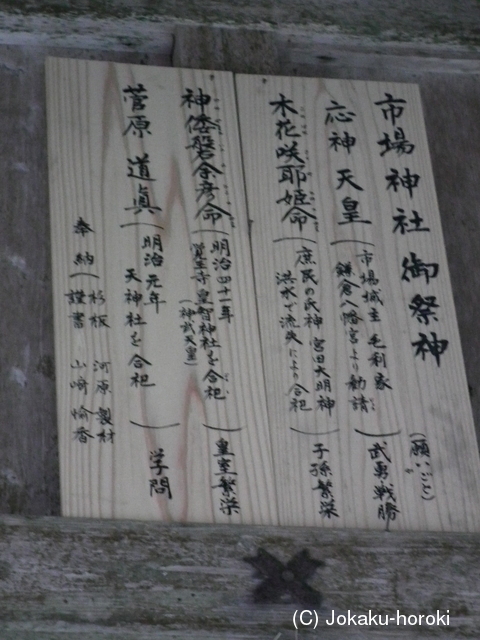 市場神社御祭神
(願いごと)
応神天皇
市場城主 毛利家
鎌倉八幡宮より勧請
武勇戦勝
木花咲耶姫命
庶民の氏神 宮田大明神
洪水で流失により合祀
子孫繁栄
神倭磐余彦命
明治四十一年
覚王寺皇智神社を合祀
(神武天皇)
皇室繁栄
菅原道眞
明治元年
天神社を合祀
学問
奉納
杉板 河原製材
謹書 山崎愉香
(C) Jokaku-horoki